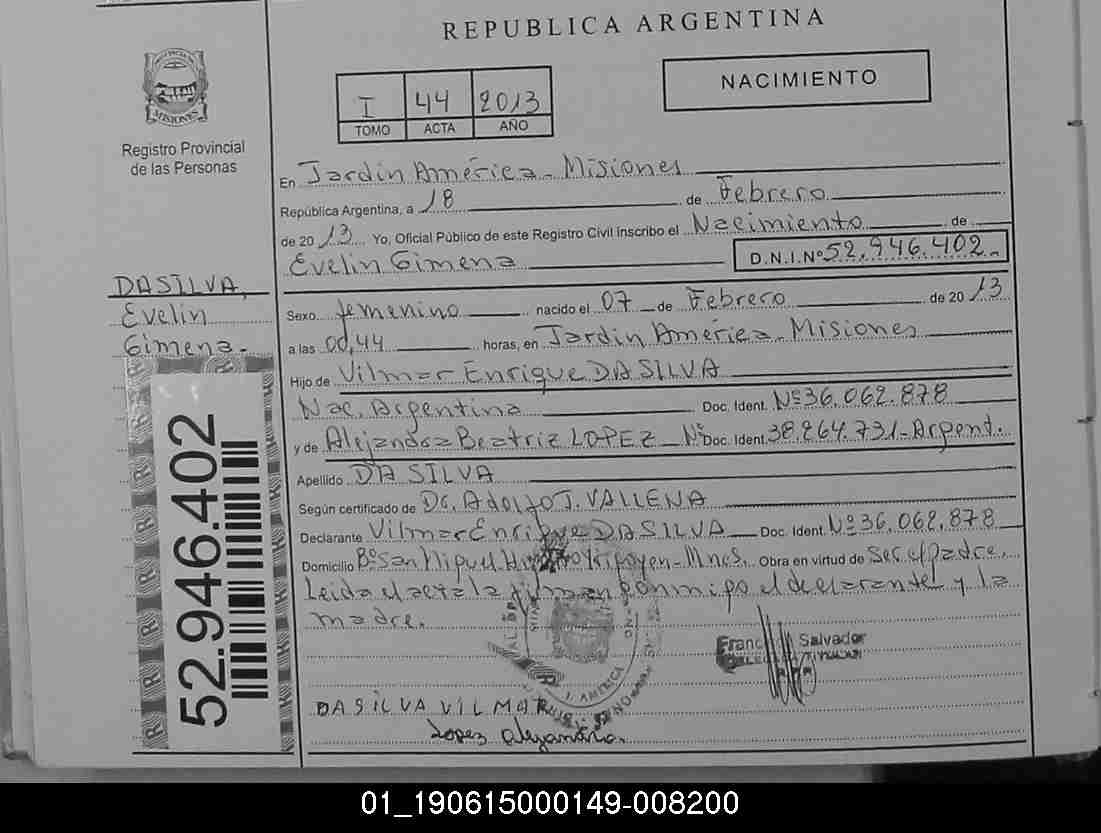 REPUBLICA ARGENTINA
PROVINCIA DE MISIONES
Registro Provincial
de las Personas
I 44 2013
TOMO ACTA AÑO
NACIMIENTO
En Jardín América - Misiones
República Argentina, a 18 de Febrero
de 2013 Yo, Oficial Público de este Registro Civil inscribo el Nacimiento de
Evelin Gimena D.N.I.Nº 52.946.402.-
DASILVA,
Evelin
Gimena.-
Sexo femenino nacido el 07 de Febrero de 2013
a las 00,44 horas, en Jardín América - Misiones
Hijo de Vilmar Enrique DASILVA
Nac. Argentina Doc. Ident. Nº36.062.878
y de Alejandra Beatriz LOPEZ - Nº Doc. Ident. 38.264.731-Argent.
Apellido DASILVA
Según certificado de Dr. Adolfo J. VALLENA
Declarante Vilmar Enrique DASILVA Doc. Ident. Nº36.062.878
Domicilio Bº San Miguel. Yrigoyen - Mnes. Obra en virtud de Ser el padre.
Leida el acta la firman conmigo el declarante y la
madre.
52.946.402
Salvador
AMERICA
DASILVA VILMAR
Lopez Alejandra.
01_190615000149-008200